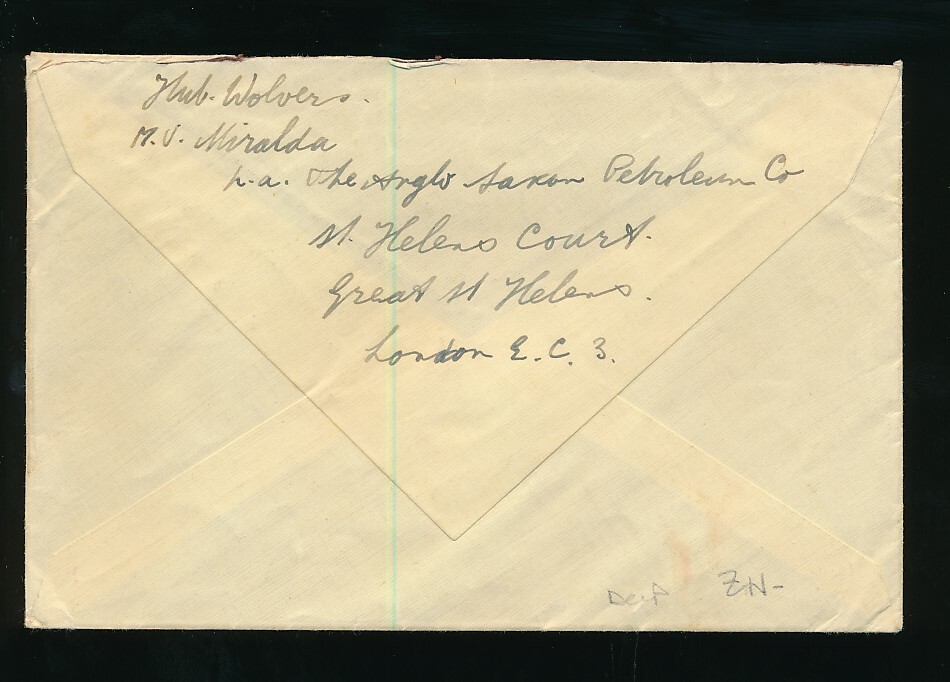 Hub. Wolvers.
M.V. Miralda
p.a. The Anglo Saxon Petroleum Co
St. Helens Court.
Great St Helens.
London E.C. 3.
ZN-